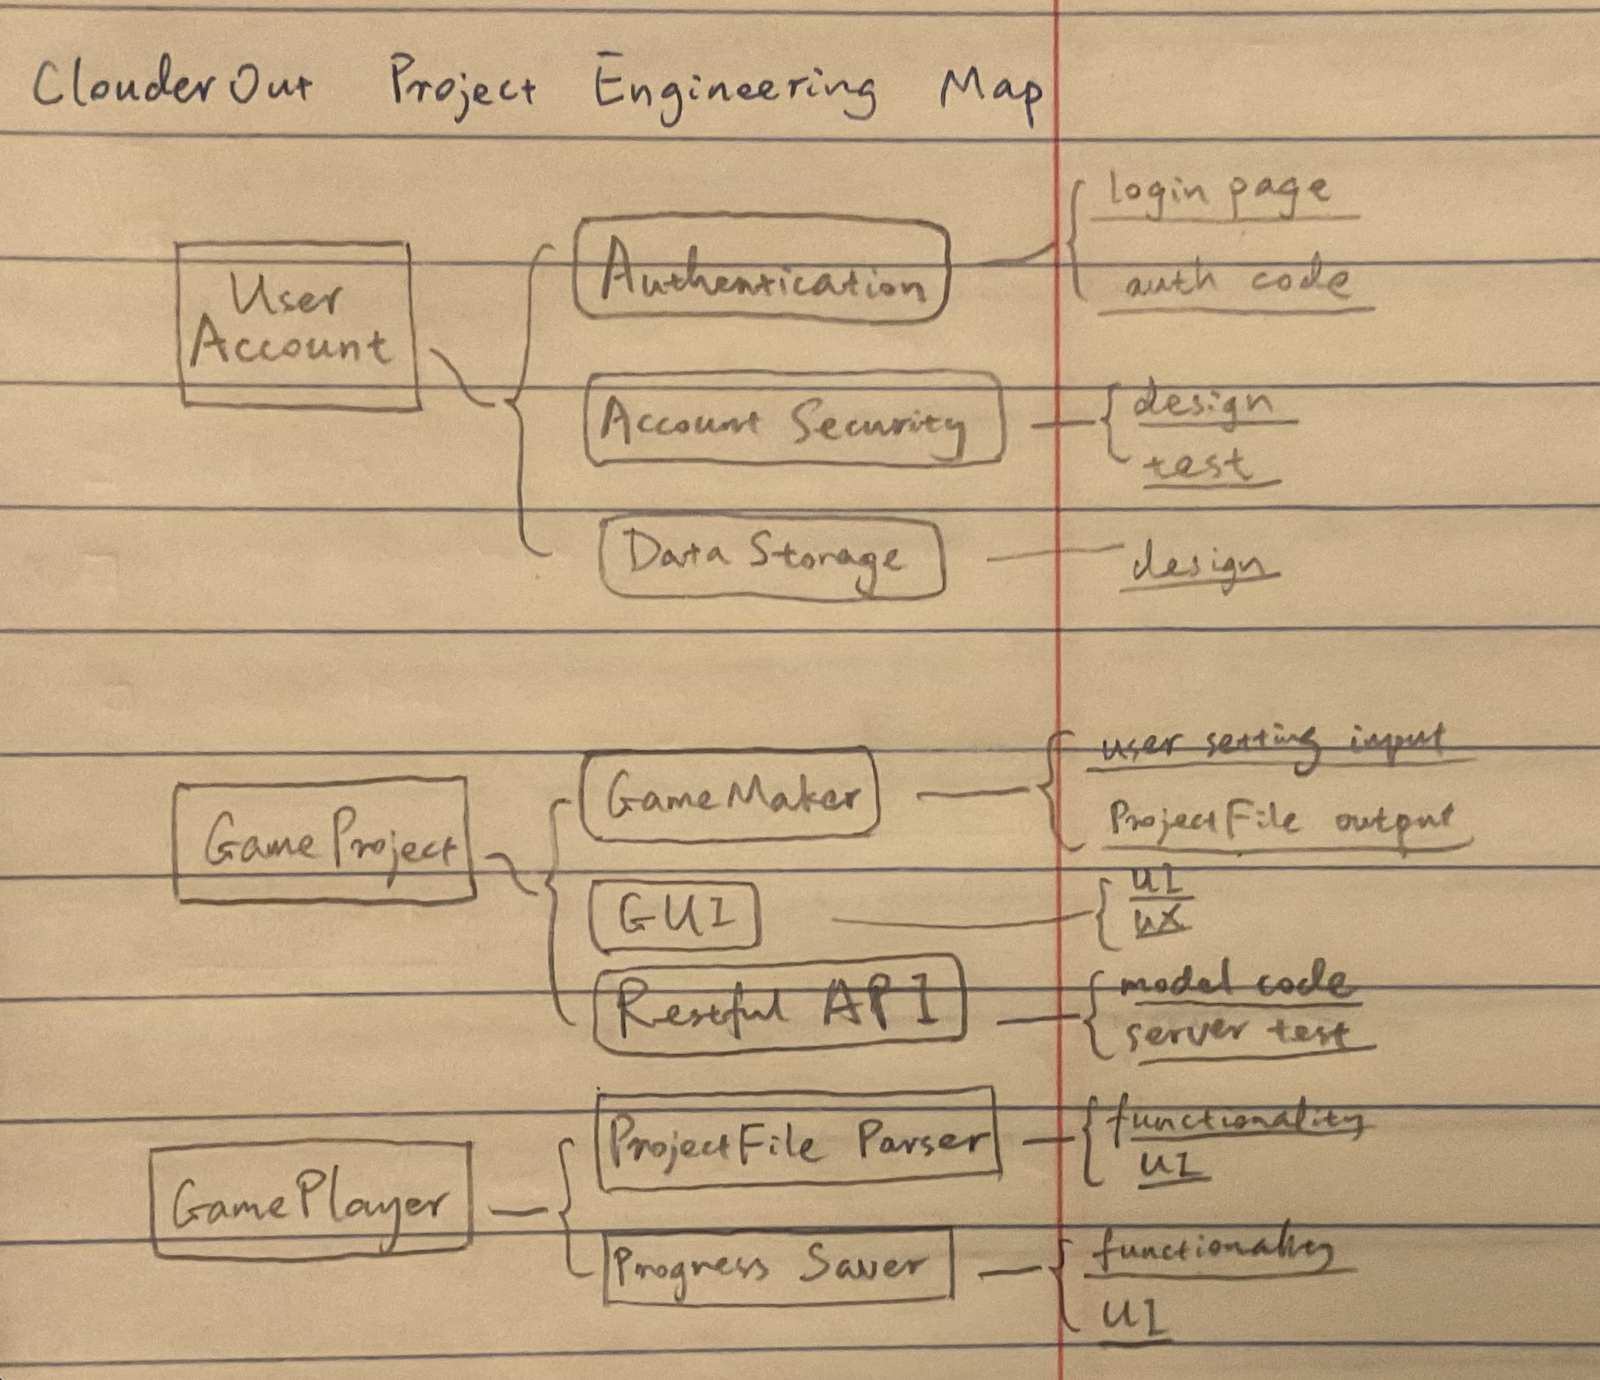 ClouderOut Project Engineering Map
User
Account
Authentication
login page
auth code
Account Security
design
test
Data Storage
design
GameProject
GameMaker
user setting input
ProjectFile output
GUI
UI
UX
Restful API
model code
server test
GamePlayer
ProjectFile Parser
functionality
UI
Progress Saver
functionality
UI